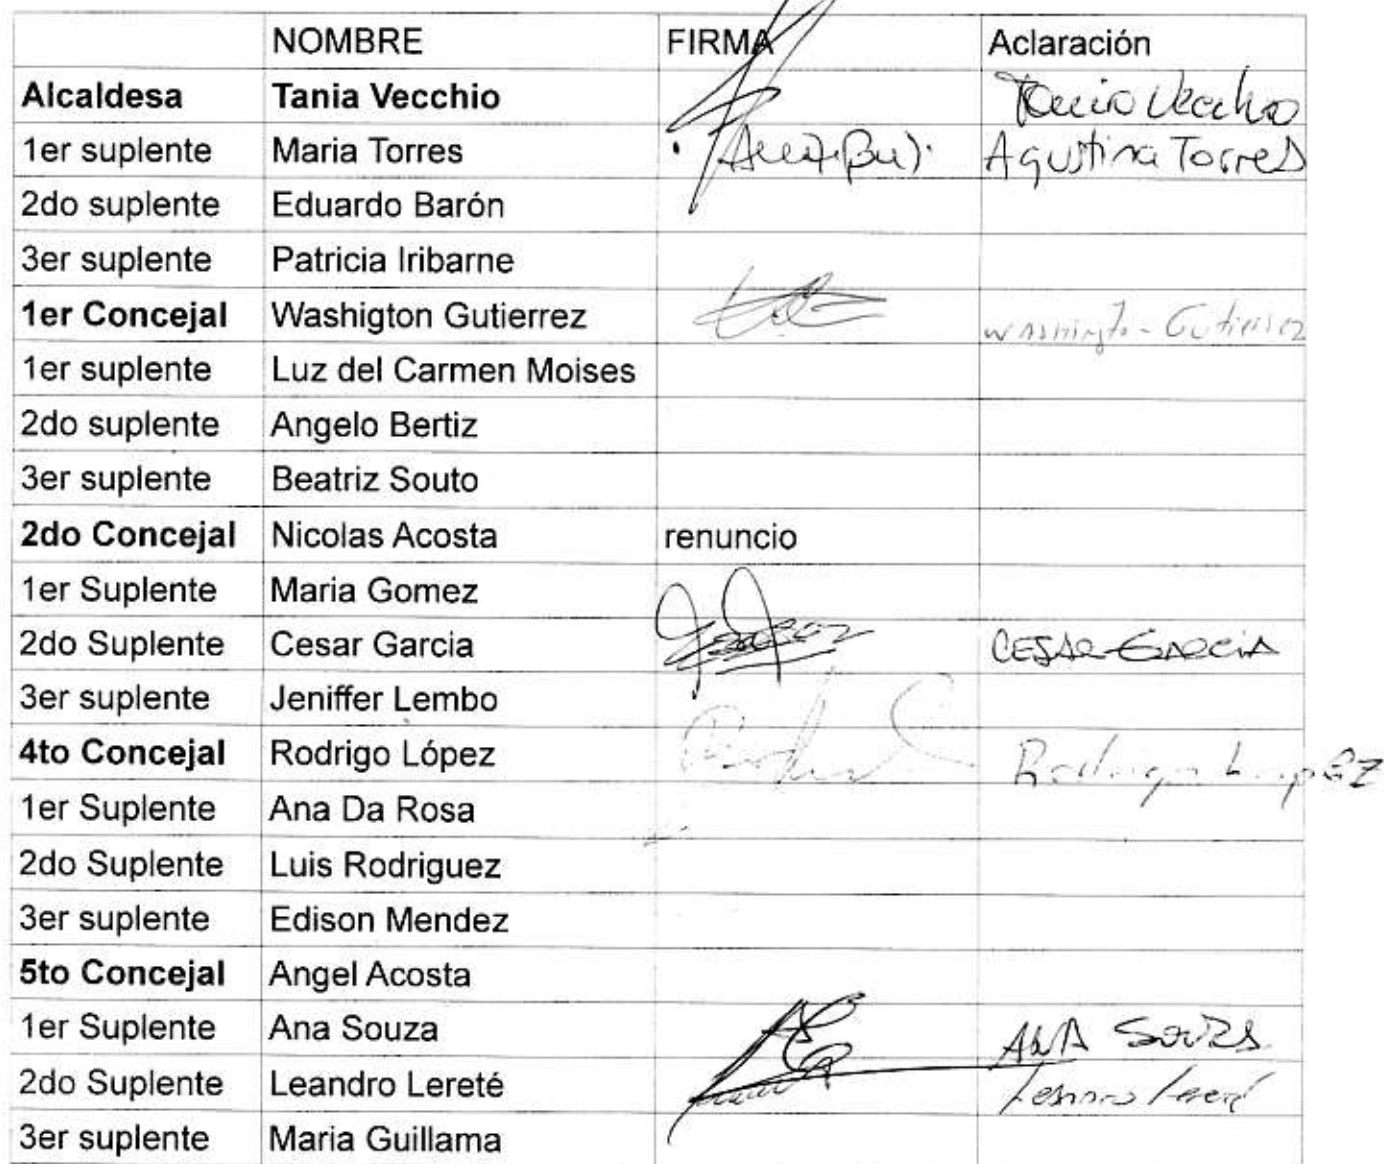 NOMBRE FIRMA Aclaración
Alcaldesa Tania Vecchio Tania Vecchio
1er suplente Maria Torres Agustina Torres
2do suplente Eduardo Barón
3er suplente Patricia Iribarne
1er Concejal Washigton Gutierrez Washington Gutierrez
1er suplente Luz del Carmen Moises
2do suplente Angelo Bertiz
3er suplente Beatriz Souto
2do Concejal Nicolas Acosta renuncio
1er Suplente Maria Gomez
2do Suplente Cesar Garcia CESAR GARCIA
3er suplente Jeniffer Lembo
4to Concejal Rodrigo López Rodrigo LopEZ
1er Suplente Ana Da Rosa
2do Suplente Luis Rodriguez
3er suplente Edison Mendez
5to Concejal Angel Acosta
1er Suplente Ana Souza ANA SOUZA
2do Suplente Leandro Lereté Leandro Lereté
3er suplente Maria Guillama